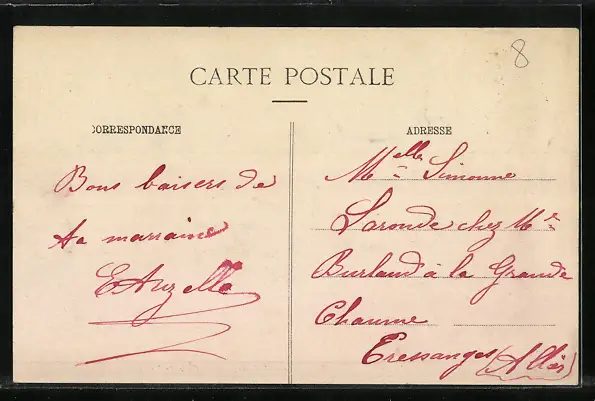 8
CARTE POSTALE
CORRESPONDANCE
ADRESSE
Bons baisers de
ta marraine
EAuzelle
Melle Simonne
Laronde chez Mr
Burlaud à la Grande
Chaume
Tressanges (Allier)